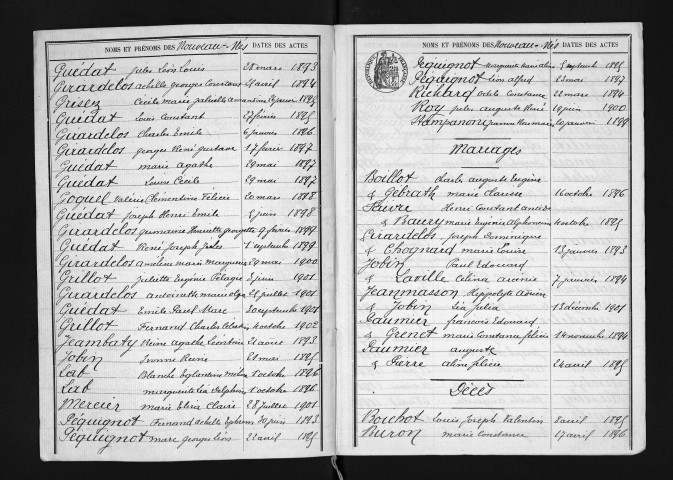 NOMS ET PRÉNOMS DES Nouveau-Nés DATES DES ACTES
Guédat Jules Léon Louis 28 mars 1893
Girardclos achille georges Constant 21 avril 1894
Grisez Cécile marie gabrielle 1895
Guédat Louis Constant 27 février 1895
Girardclos Charles Emile 6 janvier 1896
Girardclos georges René gustave 17 février 1897
Guédat marie agathe 29 mai 1897
Guédat Louise Cécile 29 mai 1897
Goguel Valérie Clémentine Félicie 20 mars 1898
Guédat Joseph Henri Emile 5 juin 1898
Girardclos germaine Henriette 9 février 1899
Guédat René Joseph Jules 1 septembre 1899
Girardclos marie marguerite 29 mai 1900
Grillot Juliette Eugénie Pélagie 8 juin 1901
Girardclos antoinette 28 juillet 1901
Guédat Emile Paul Marc 30 septembre 1901
Grillot Fernand Charles 4 octobre 1902
Jeambaty Reine Agathe Léontine 21 aout 1893
Jobin Yvonne Reine 21 mai 1895
Lab Blanche Eglantine 1 octobre 1896
Lab marguerite Léa Delphine 1 octobre 1896
Mercier marie Elise Claire 28 juillet 1901
Péquignot Fernand achille 30 juin 1893
Péquignot marc georges Léon 22 avril 1895
NOMS ET PRÉNOMS DES Nouveau-Nés DATES DES ACTES
Péquignot marguerite 5 septembre 1895
Péquignot Léon alfred 23 mai 1897
Richard Odile Constance 22 mars 1894
Roy jules auguste René 19 juin 1900
10 janvier 1899
Mariages
Boillot charles auguste Eugène
& Gebrath marie Clarisse 16 octobre 1896
Faivre Henri Constant
& Baury marie Eugénie Alphonsine 4 octobre 1895
Girardclos Joseph Dominique
& Chognard marie Louise 13 janvier 1893
Jobin Paul Edouard
& Laville Célina 7 janvier 1894
Jeanmasson Hippolyte
& Jobin Léa Julia 13 décembre 1901
Paumier françois Edouard
& Grenet marie Constance 14 novembre 1894
Paumier auguste
& Pierre 24 avril 1895
Décès
Bouhot Louis Joseph Valentin 8 avril 1895
Buron marie Constance 17 avril 1896